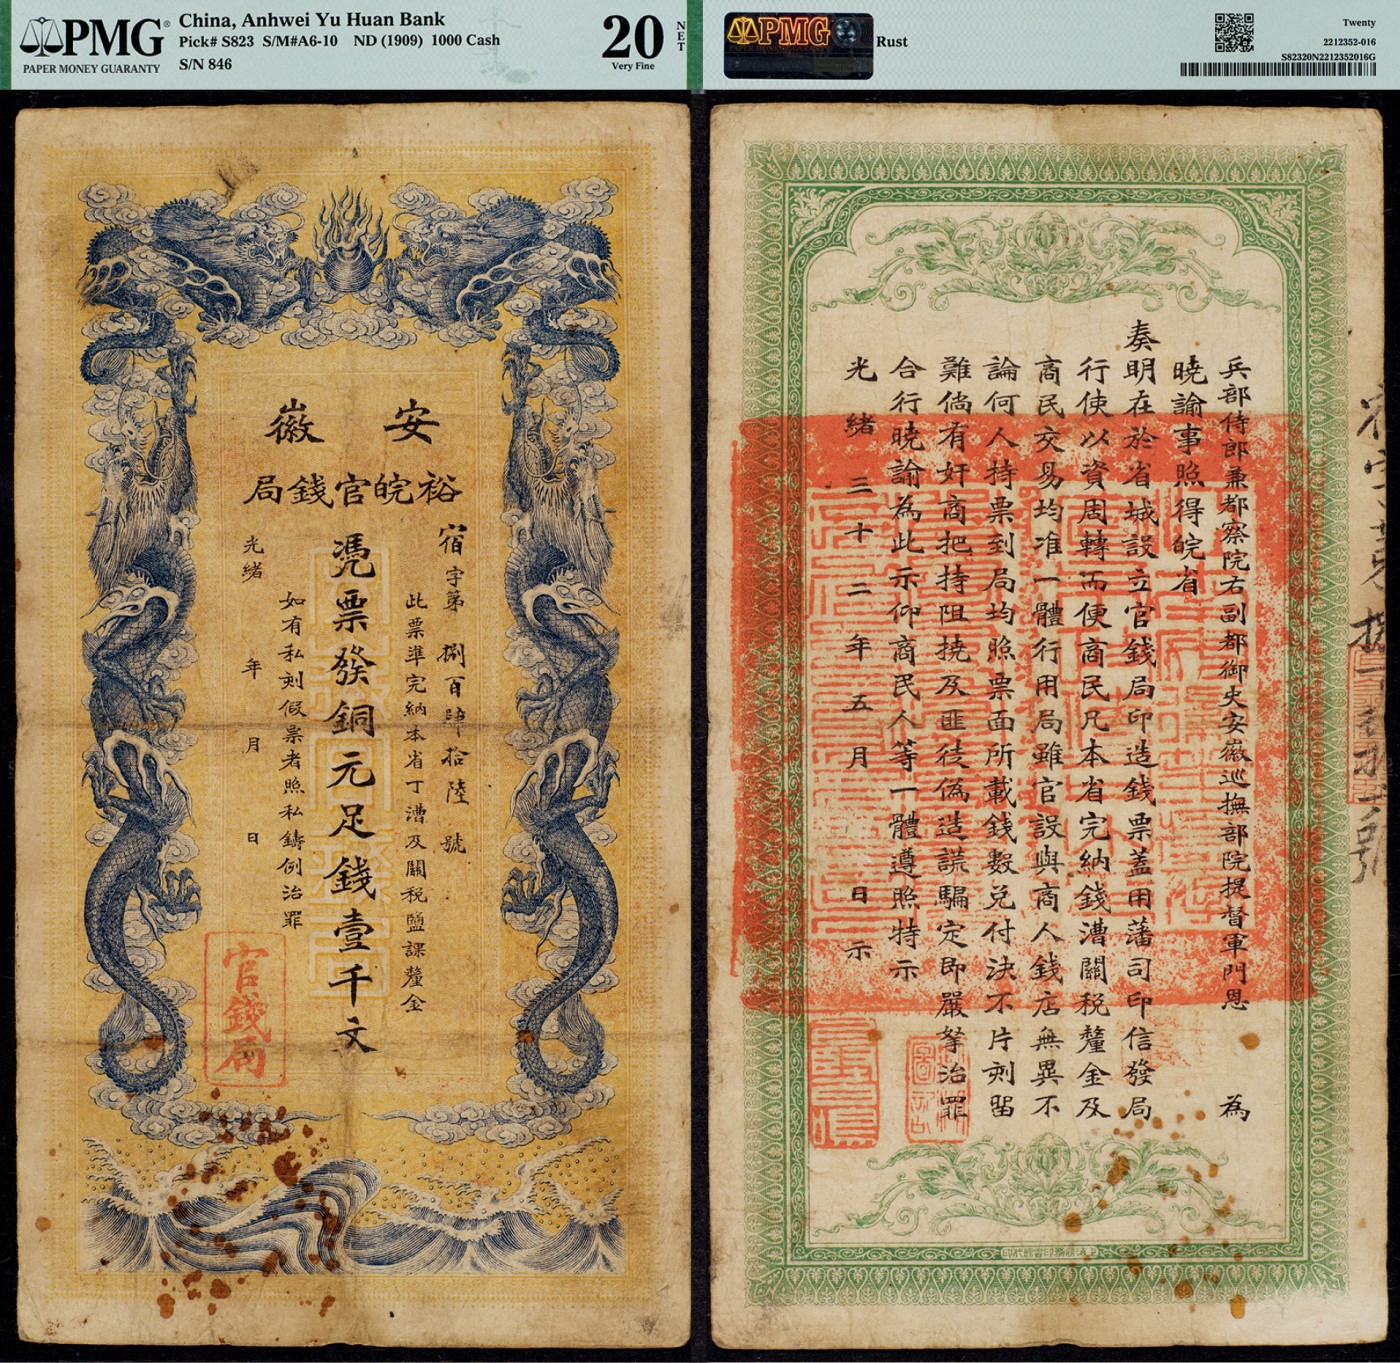 PMG
PAPER MONEY GUARANTY
China, Anhwei Yu Huan Bank
Pick# S823 S/M#A6-10 ND (1909) 1000 Cash
S/N 846
20
Very Fine
NET
PMG
Rust
Twenty
2212352-016
S82320N2212352016G
徽 安
局錢官皖裕
宿字第捌百肆拾陸號
此票準完納本省丁漕及關稅鹽課釐金
憑票發銅元足錢壹千文
如有私刻假票者照私鑄例治罪
光緒 年 月 日
官錢局
兵部侍郎兼都察院右副都御史安徽巡撫部院提督軍門恩 為
曉諭事照得皖省
奏明在於省城設立官錢局印造錢票蓋用藩司印信發局
行使以資周轉而便商民凡本省完納錢漕關稅釐金及
商民交易均准一體行用局雖官設與商人錢店無異不
論何人持票到局均照票面所載錢數兌付決不片刻留
難倘有奸商把持阻撓及匪徒偽造謊騙定即嚴拏治罪
合行曉諭為此示仰商民人等一體遵照特示
光緒三十二年五月 日示